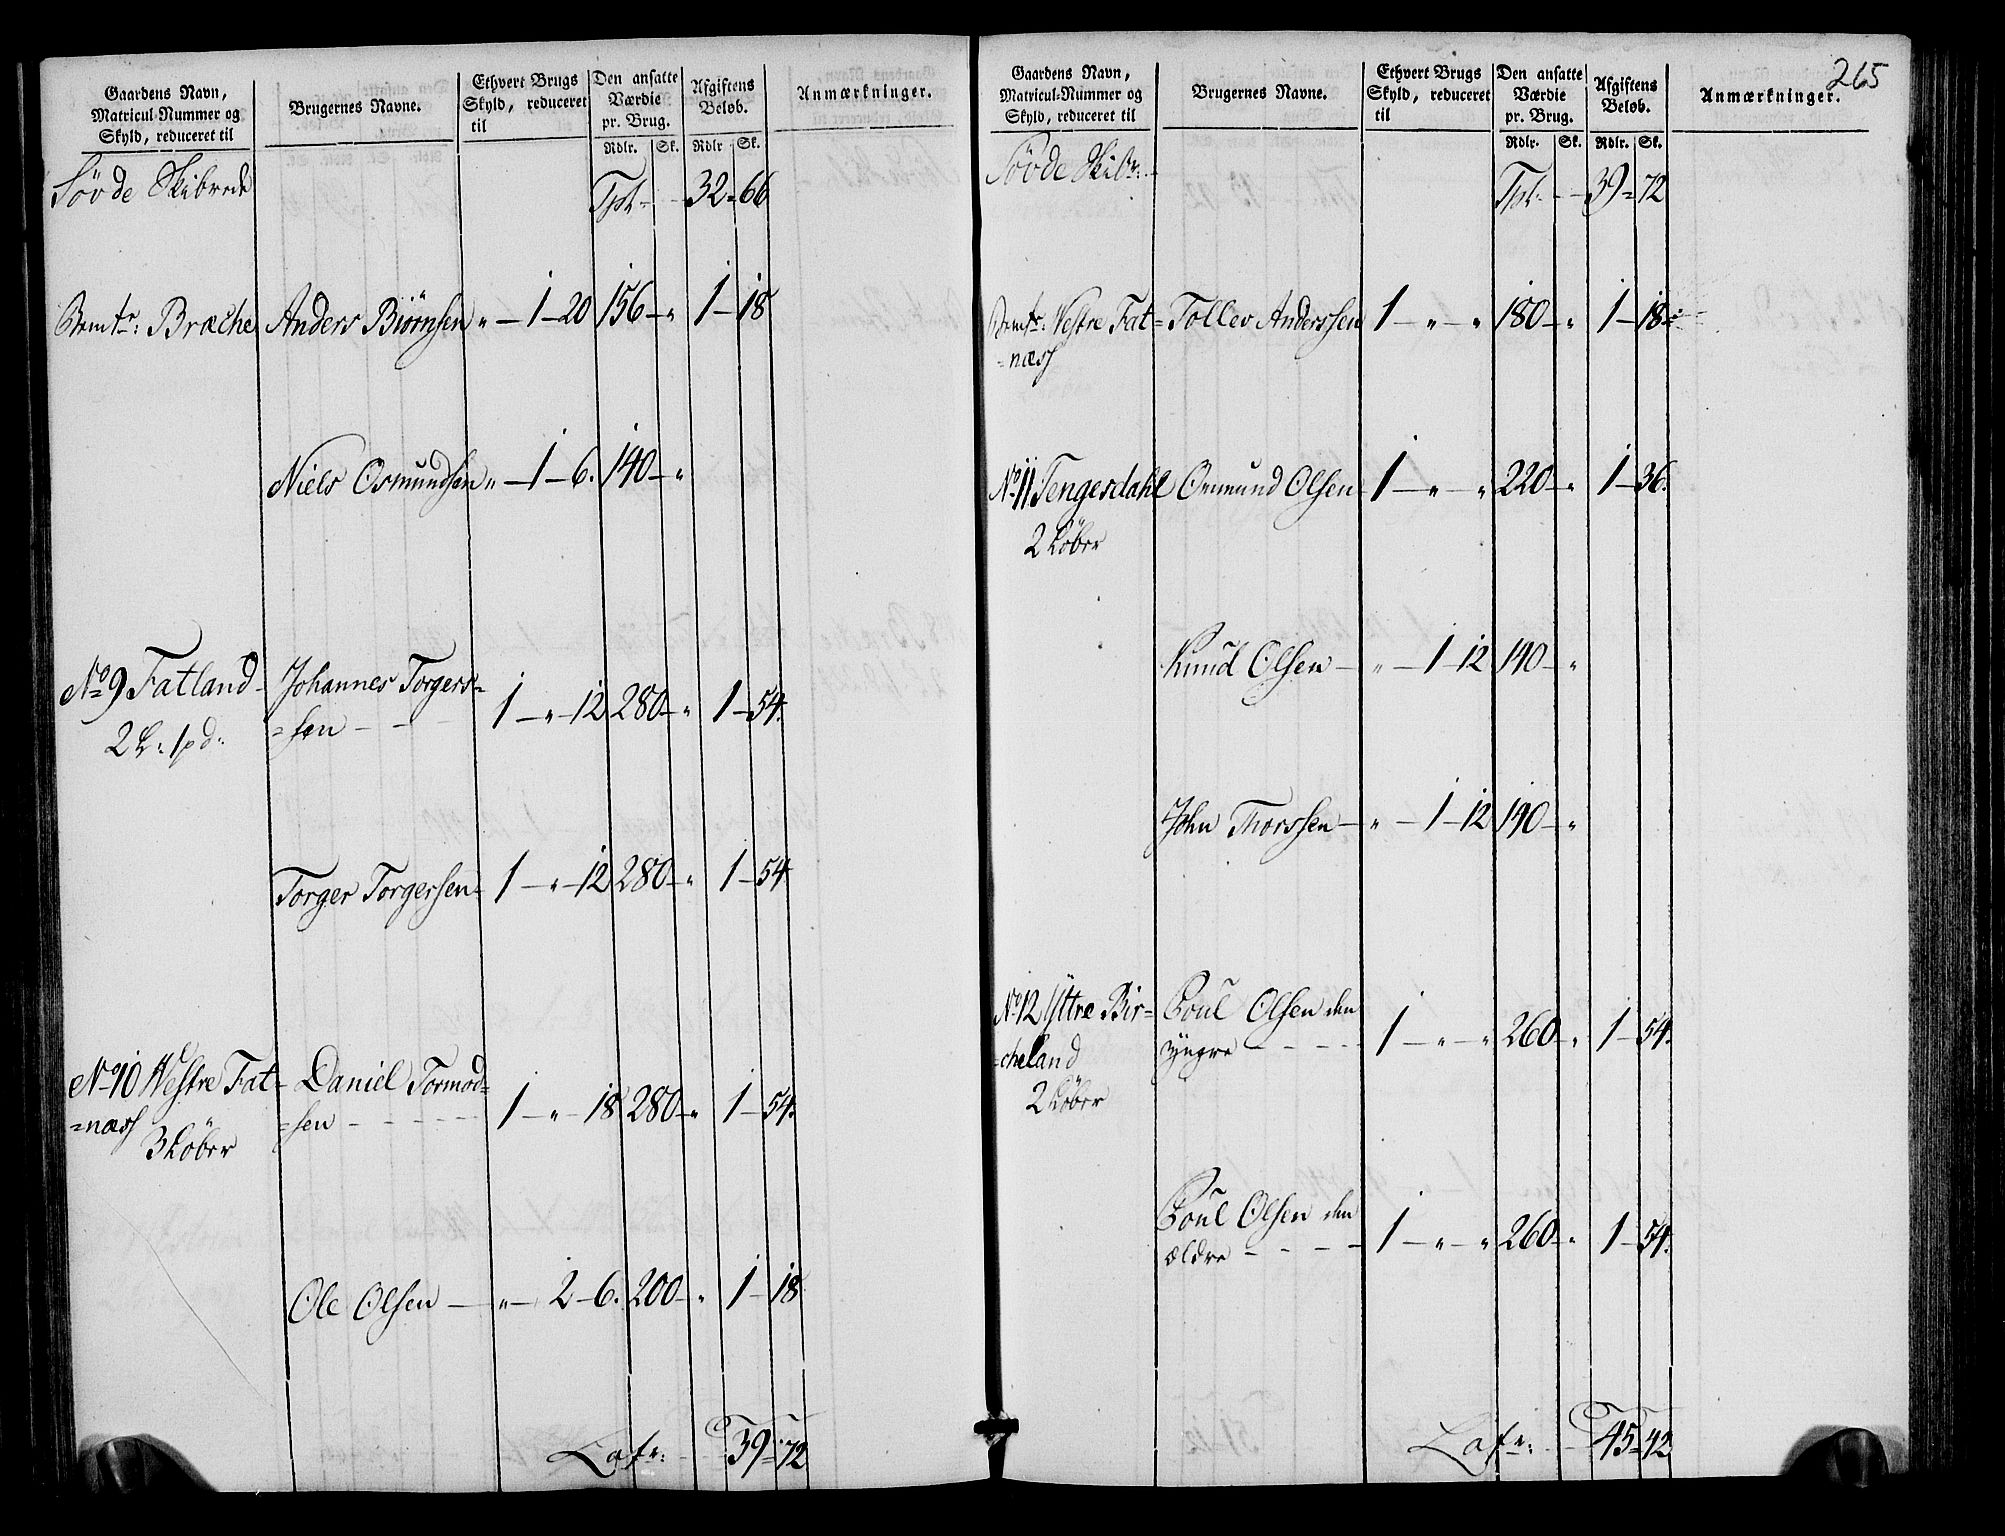 Gaardens Navn,
Matricul-Nummer og
Skyld, reduceret til
Brugernes Navne.
Ethvert Brugs
Skyld, reduceret
til
Den ansatte
Værdie
pr. Brug.
Afgiftens
Beløb.
Anmærkninger.
Rdlr. Sk. Rdlr Sk.
Søvde Skibrede Tpt. 32 = 66
Bemtr: Bræche Anders Biørnsen „ — 1 — 20 156 — „ 1 — 18
Niels Osmundsen „ — 1 — 6. 140 — „
No 9 Fatland Johannes Torgers=
=sen — — 1 — „ — 12 280 — „ 1 — 54.
2 L: 1 pd:
Torger Torgersen 1 — „ — 12 280 — „ 1 — 54
No 10 Vestre Fat- Daniel Tormod=
=næss =sen - - - - 1 — „ — 18 280 — „ 1 — 54.
3 Løber
Ole Olsen — „ — 2 — 6. 200 — „ 1 — 18
Latr: 39 = 72
265
Gaardens Navn,
Matricul-Nummer og
Skyld, reduceret til
Brugernes Navne.
Ethvert Brugs
Skyld, reduceret
til
Den ansatte
Værdie
pr. Brug.
Afgiftens
Beløb.
Anmærkninger.
Rdlr. Sk. Rdlr. Sk.
Søvde Skibr: Tpt. 39 = 72
Bemtr: Vestre Fat= Tollev Anderssen 1 — „ — „ 180 — „ 1 — 18
=næss
No 11 Tengesdahl Omund Olsen 1 — „ — „ 220 — „ 1 — 36.
2 Løber
Knud Olsen — „ — 1 — 12 140 — „
John Thorssen — „ — 1 — 12 140 — „
No 12 Yttre Bir= Poul Olsen den
=cheland yngre - - - - 1 — „ — „ 260 — „ 1 — 54.
2 Løber
Poul Olsen den
ældre - - - - 1 — „ — „ 260 — „ 1 — 54.
Latr: 45 = 42